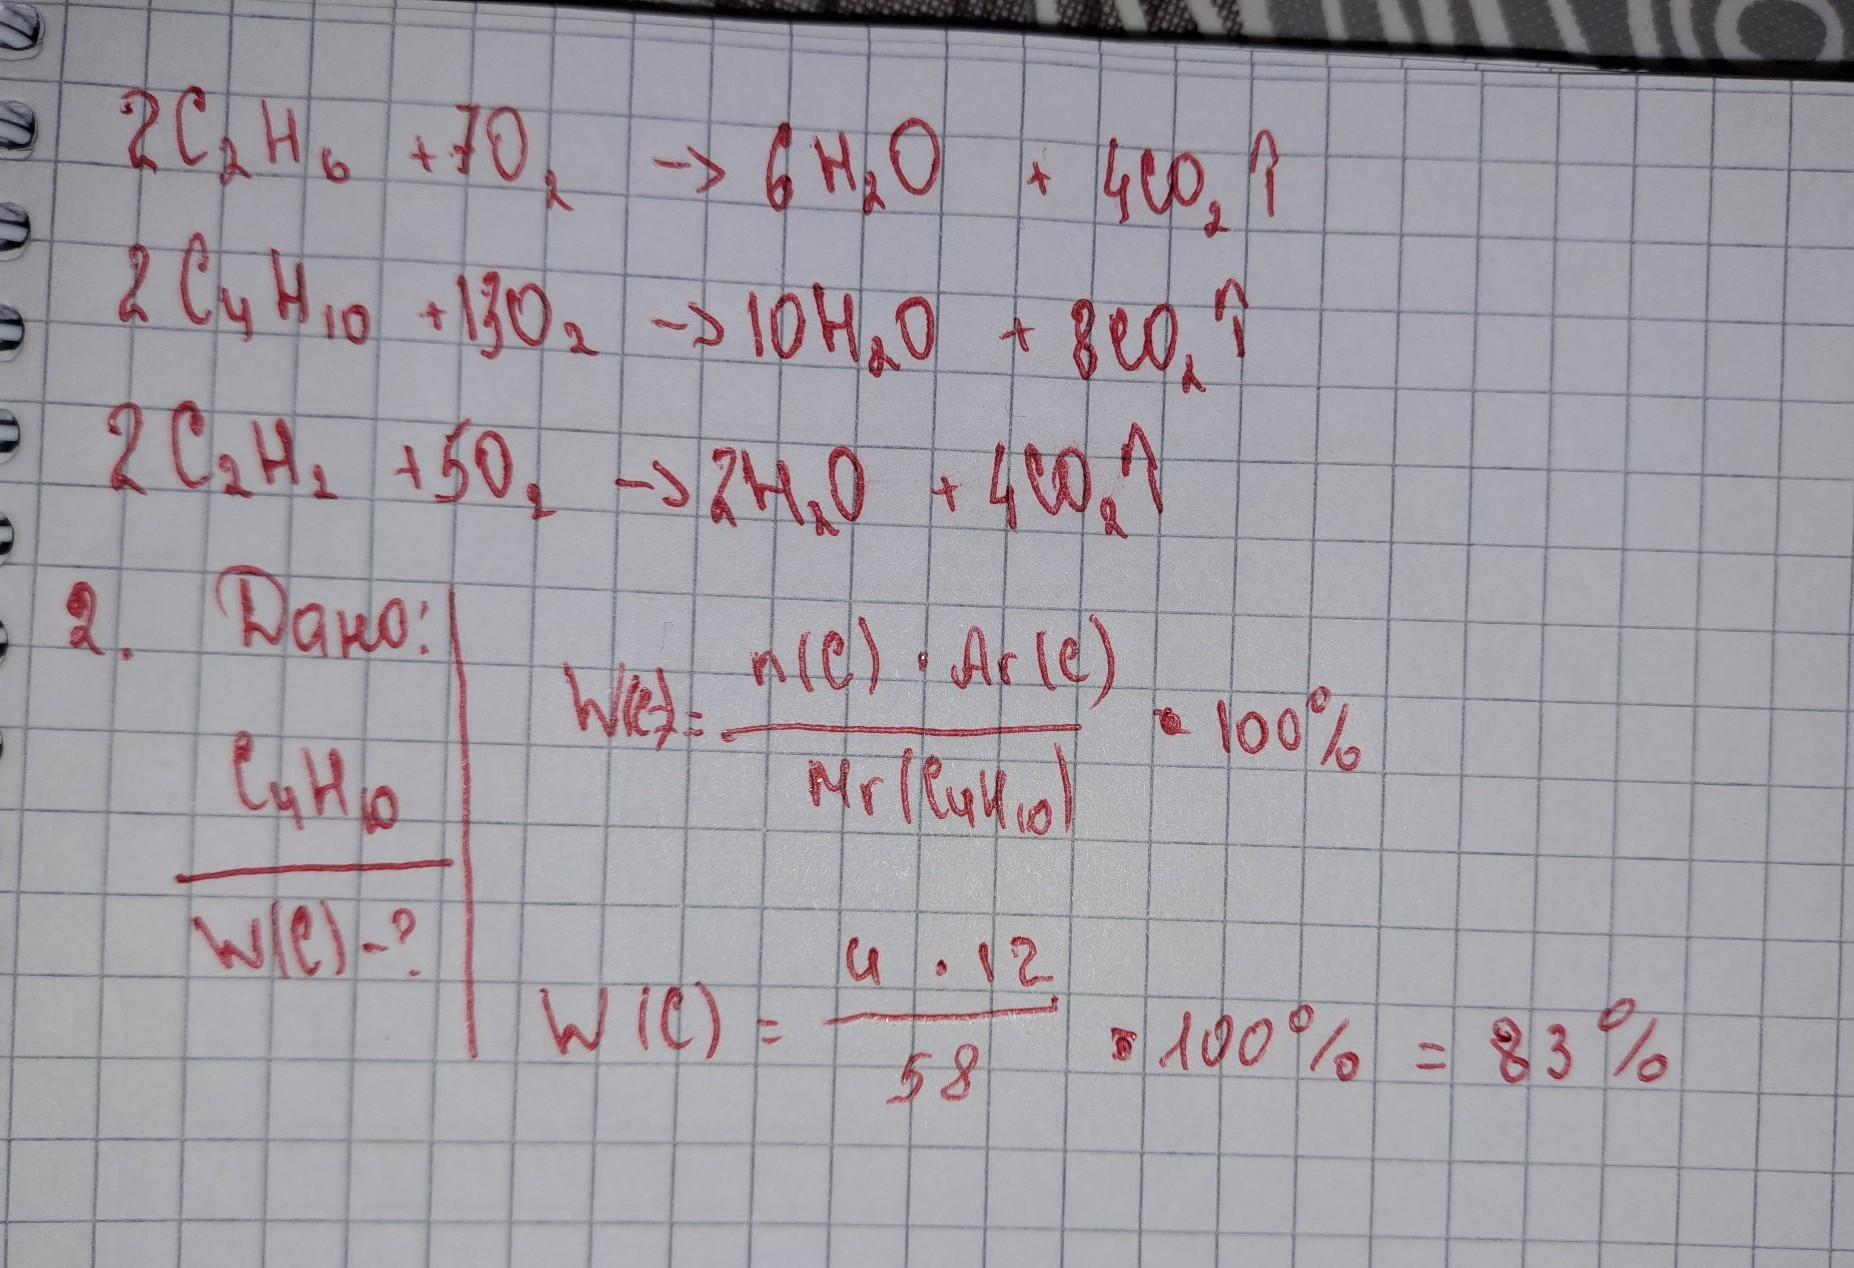 2C₂H₆ + 7O₂ -> 6H₂O + 4CO₂↑
2C₄H₁₀ + 13O₂ -> 10H₂O + 8CO₂↑
2C₂H₂ + 5O₂ -> 2H₂O + 4CO₂↑
2. Дано:
C₄H₁₀
W(C) - ?
W(C) = n(C) · Ar(C) / Mr(C₄H₁₀) · 100%
W(C) = 4 · 12 / 58 · 100% = 83%